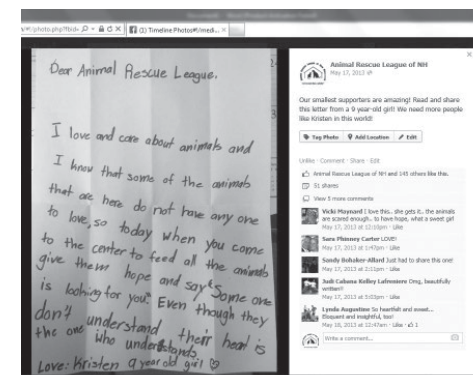 /photo.php?fbid=
(1) Timeline Photos
Dear Animal Rescue League.
I love and care about animals and
I know that some of the animals
that are here do not have any one
to love, so today when you come
to the center to feed all the animals
give them hope and say "Some one
is looking for you". Even though they
don't understand their heart is
the one who understands
Love: Kristen 9 year old girl ♡
Animal Rescue League of NH
May 17, 2013
Our smallest supporters are amazing! Read and share
this letter from a 9 year-old girl! We need more people
like Kristen in this world!
Tag Photo Add Location Edit
Unlike · Comment · Share · Edit
Animal Rescue League of NH and 145 others like this.
51 shares
View 5 more comments
Vicki Maynard I love this.. she gets it.. the animals
are scared enough.. to have hope, what a sweet girl
May 17, 2013 at 12:10pm · Like
Sara Phinney Carter LOVE!
May 17, 2013 at 1:47pm · Like
Sandy Bohaker-Allard Just had to share this one!
May 17, 2013 at 2:11pm · Like
Judi Cabana Kelley Lafreniere Omg, beautifully
written!!
May 17, 2013 at 5:03pm · Like
Lynda Augustine So heartfelt and sweet...
Eloquent and insightful, too!
May 18, 2013 at 12:47am · Like · 1
Write a comment...